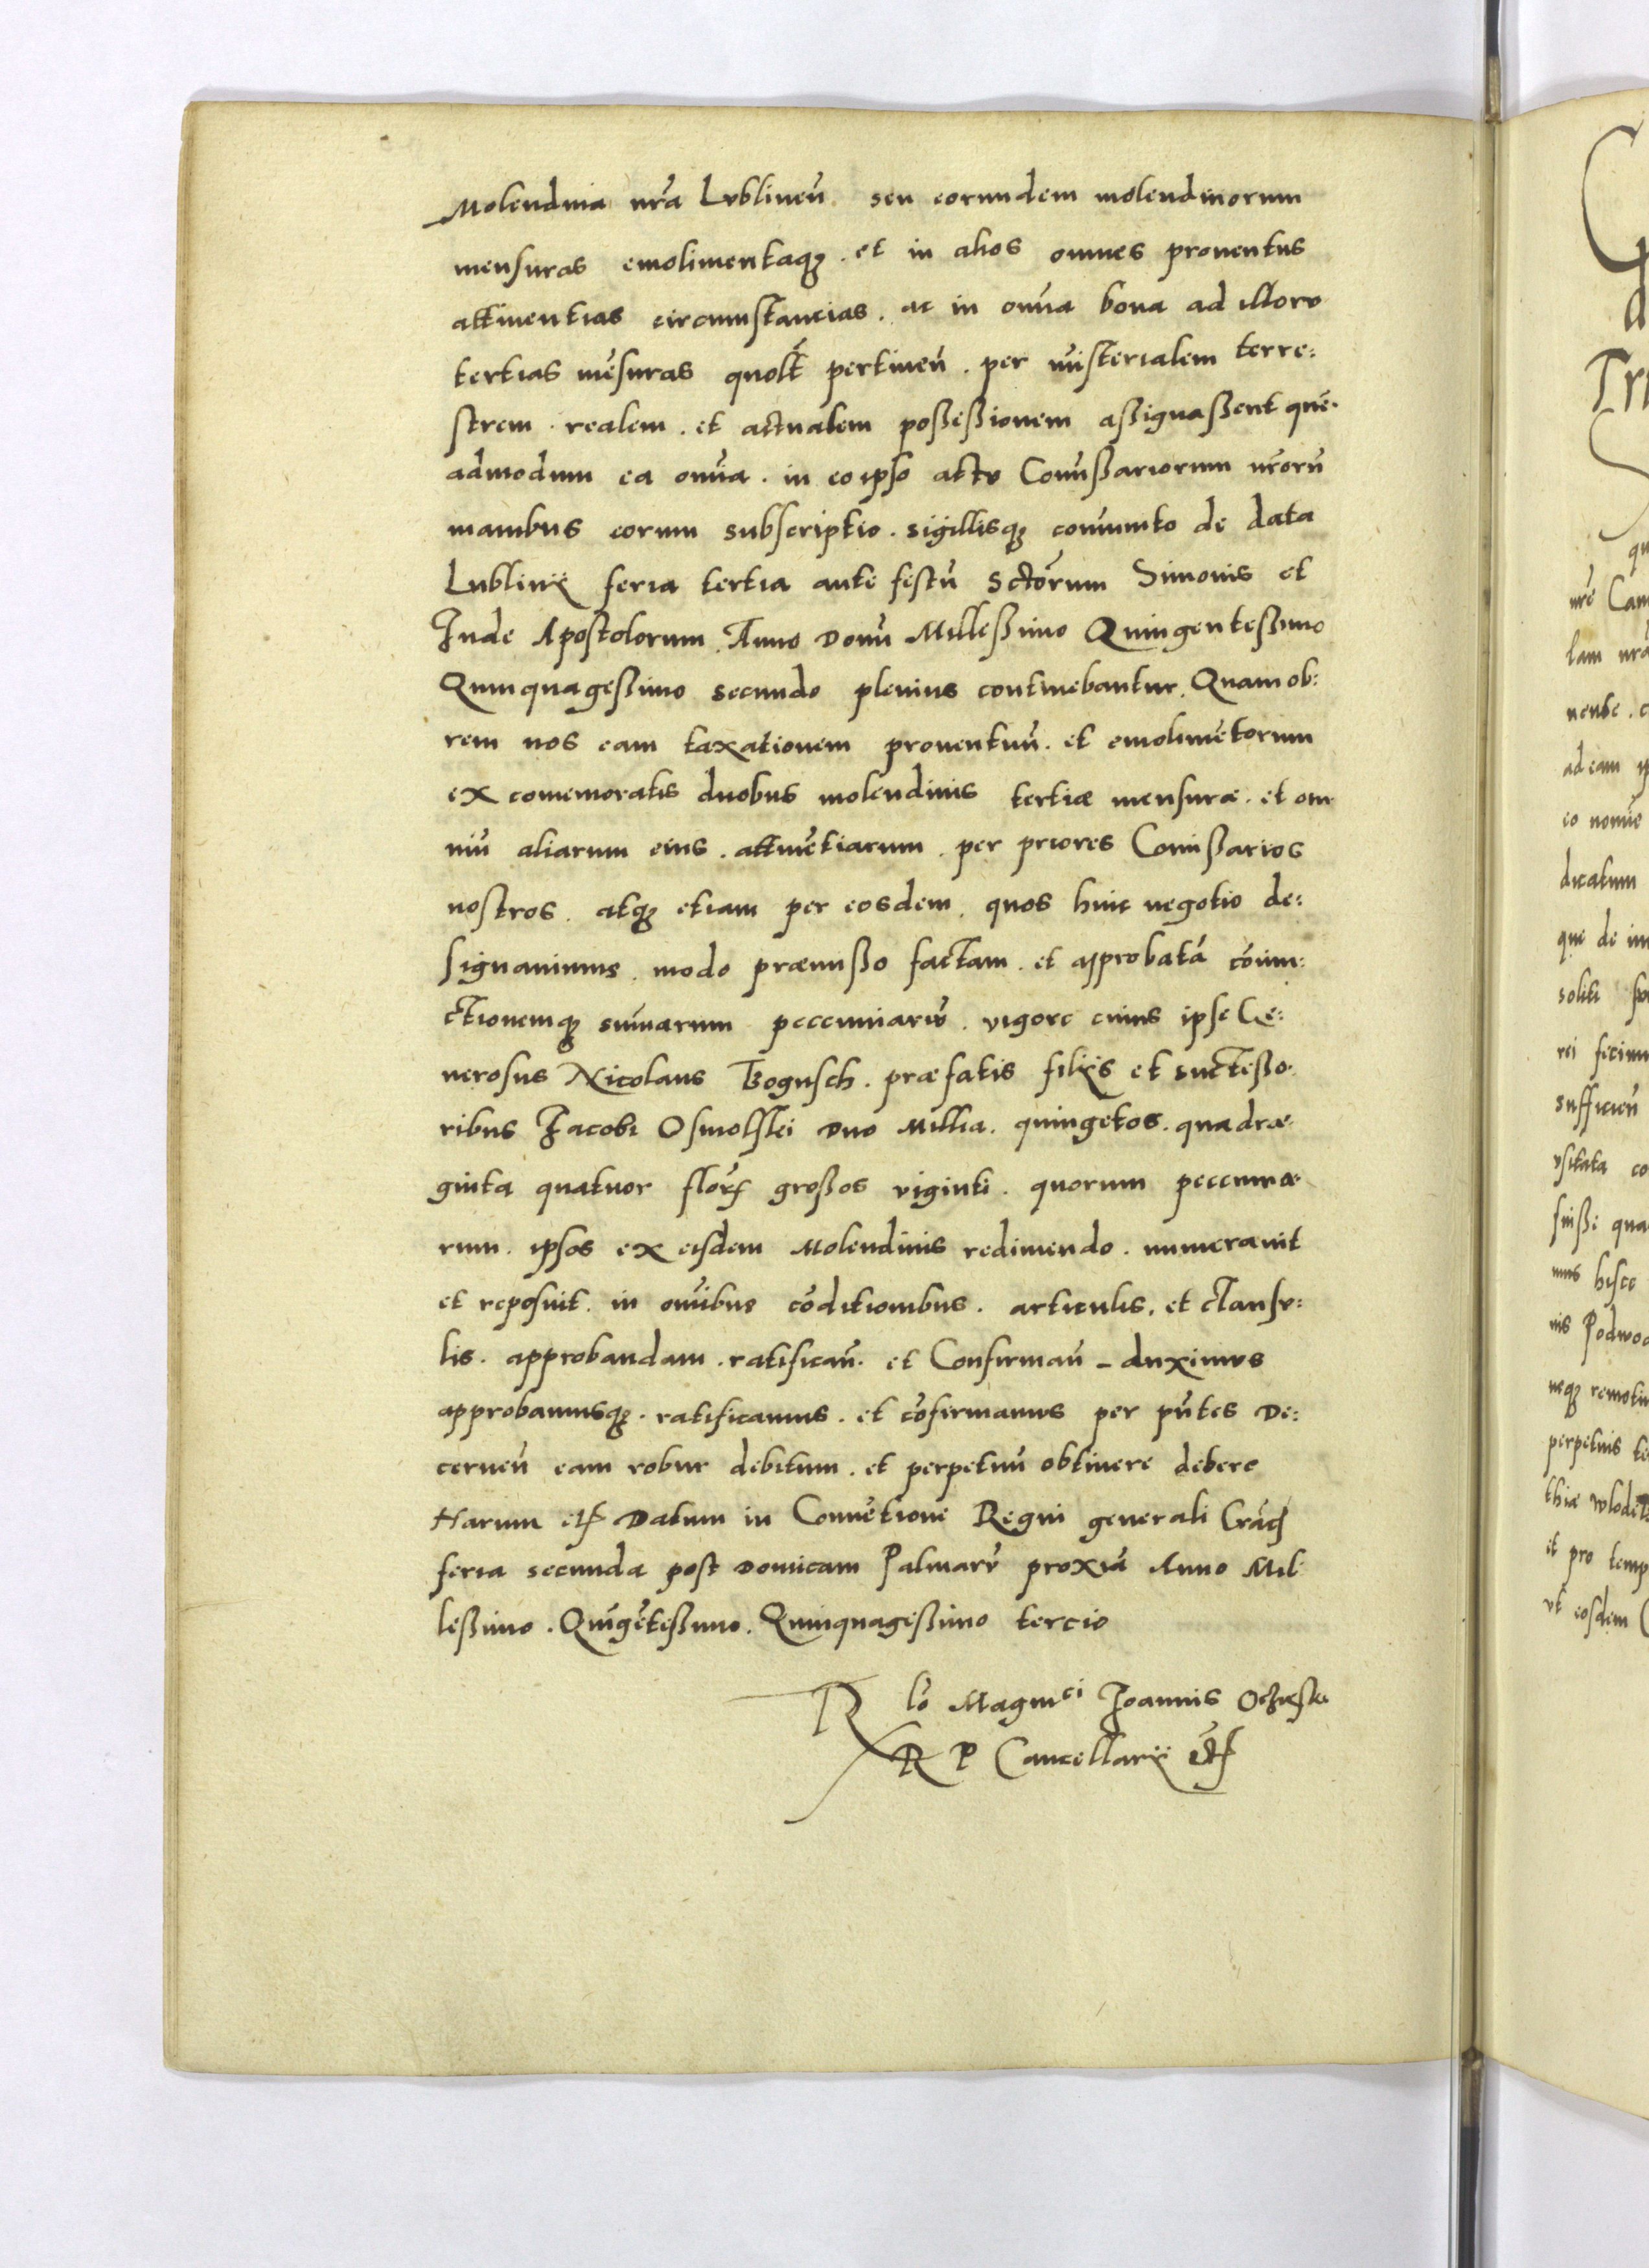 Molendina nrã Lublineñ seu eorundem molendinorum
mensuras emolimentaqȝ . et in alios omnes prouentus
attinentias circumstancias . ac in om̃ia bona ad illoru
tertias mẽsuras quolt̃ pertineñ . per mĩsterialem terre:
strem . realem . et actualem poßeßionem aßignaßent quẽ.
admodum ea om̃ia . in eo ipso actu Com̃ißariorum nr̃orũ
manibus eorum subscripto . sigillisqȝ com̃unito de data
Lublinij feria tertia ante festũ Sctõrum Simonis et
Jude Apostolorum . Anno Domĩ Milleßimo Quingenteßimo
Quinquageßimo secundo plenius continebantur . Quamob:
rem nos eam taxationem prouentuũ . et emolimẽtorum
ex comemoratis duobus molendinis tertiæ mensuræ . et om
niũ aliarum eius . attinẽtiarum . per priores Comißarios
nostros . atqȝ etiam per eosdem . quos huic negotio de:
signauimus . modo præmißo factam . et approbatã cõiun:
ctionemqȝ sum̃arum peccuniarũ . vigore cuius ipse Ge:
nerosus Nicolaus Bogusch . præfatis filijs et succeßo.
ribus Jacobi Osmolslei Duo Millia . quingẽtos . quadra.
ginta quatuor flor̃ großos viginti . quorum peccunia.
rum . ipsos ex eisdem Molendinis redimendo . numerauit
et reposuit . in om̃ibus cõditionibus . articulis . et clausu:
lis . approbandam . ratificañ . et Confirmañ - duximus
approbamusqȝ . ratificamus . et cõfirmamus per pñtes De:
cerneñ eam robur debitum . et perpetuũ obtinere debere
Harum etc Datum in Conuẽtione Regni generali Crac̃
feria secunda post Domĩicam Palmarũ proxĩa Anno Mil
leßimo . Quĩgẽteßimo . Quinquageßimo tercio
Rlõ Magnici Joannis Oczieski
R P Cancellarij etc